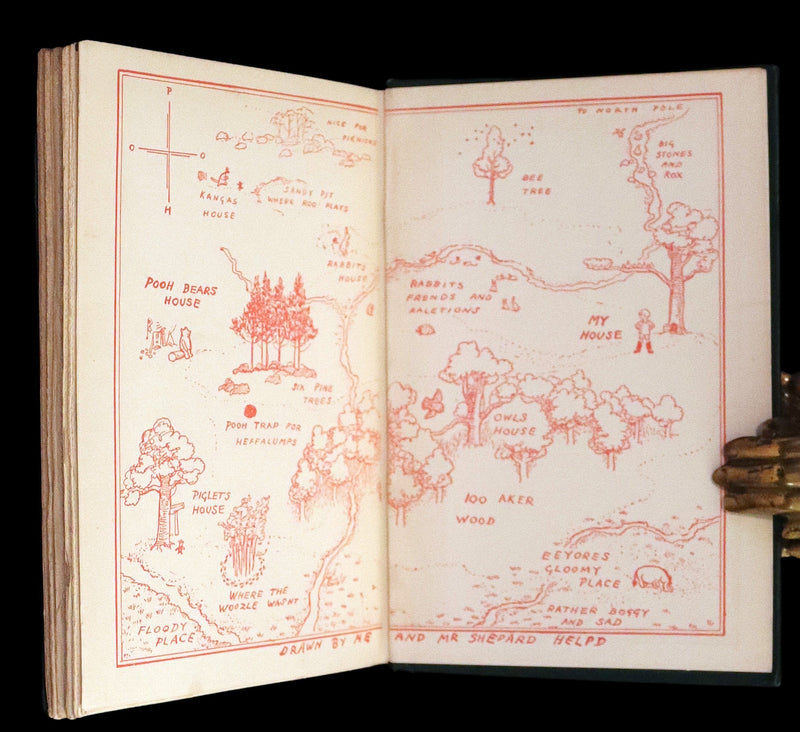 P
O O
H
NICE FOR
PIKNICKS
KANGAS
HOUSE
SANDY PIT
WHERE ROO PLAYS
RABBITS
HOUSE
POOH BEARS
HOUSE
SIX PINE
TREES
POOH TRAP FOR
HEFFALUMPS
PIGLETS
HOUSE
WHERE THE
WOOZLE WASNT
FLOODY
PLACE
TO NORTH POLE
BIG
STONES
AND
ROX
BEE
TREE
RABBITS
FRENDS AND
RALETIONS
MY
HOUSE
OWLS
HOUSE
100 AKER
WOOD
EEYORES
GLOOMY
PLACE
RATHER BOGGY
AND SAD
DRAWN BY ME AND MR SHEPARD HELPD